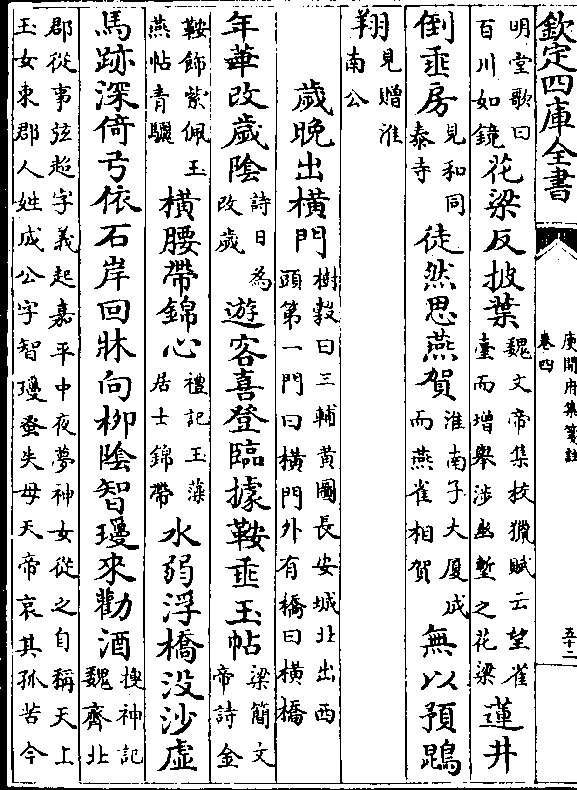 欽定四庫全書
庾開府集箋註
卷四
五十二
明堂歌曰百川如鏡花梁反披葉魏文帝集校獵賦云望雀臺而增舉涉幽塹之花梁蓮井
倒垂房見和同泰寺徒然思燕賀淮南子大廈成而燕雀相賀無以預鵾
翔見贈淮南公
歲晚出橫門樹穀曰三輔黃圖長安城北出西頭第一門曰橫門外有橋曰橫橋
年華改歲陰詩曰為改歲遊客喜登臨據鞍垂玉帖梁簡文帝詩金
鞍飾紫佩玉燕帖青驪橫腰帶錦心禮記玉藻居士錦帶水弱浮橋没沙虛
馬跡深倚弓依石岸回牀向柳陰智瓊來勸酒搜神記魏齊北
郡從事弦超字義起嘉平中夜夢神女從之自稱天上玉女東郡人姓成公字智瓊蚤失母天帝哀其孤苦今